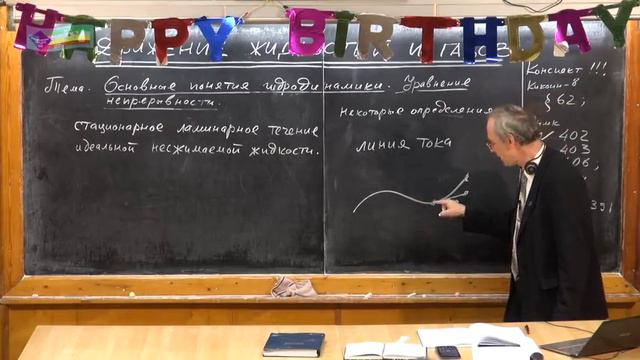 HAPPY BIRTHDAY
ДВИЖЕНИЕ ЖИДКОСТЕЙ И ГАЗОВ
Тема. Основные понятия гидродинамики. Уравнение
непрерывности.
стационарное ламинарное течение
идеальной несжимаемой жидкости.
некоторые определения
линия тока
Конспект !!!
Кикоин-8
§ 62;
402
403
406;
391